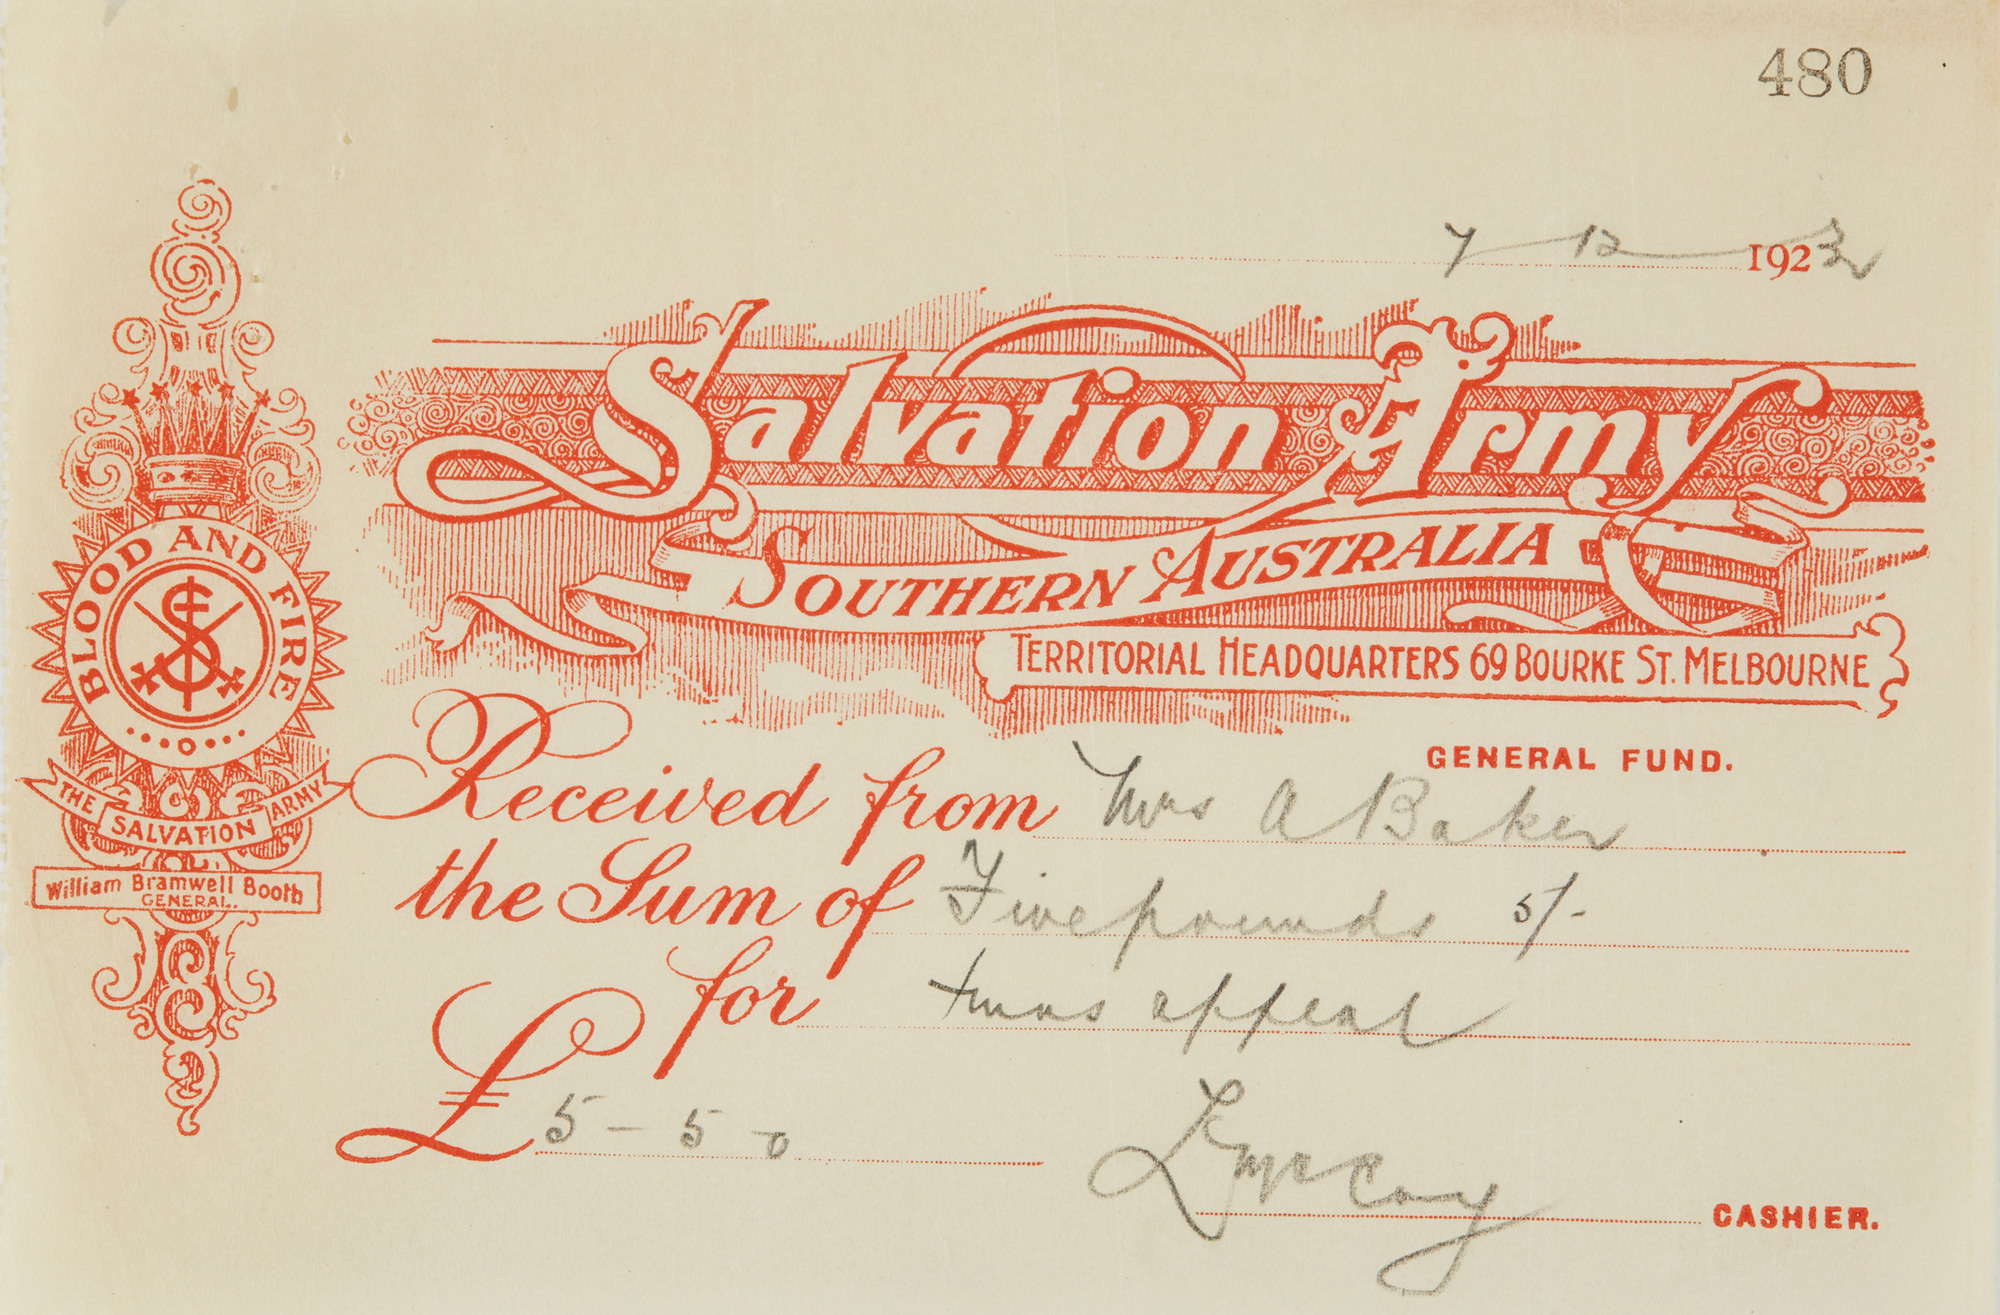 480
7 – 12 – 192
Salvation Army
Southern Australia
Territorial Headquarters 69 Bourke St. Melbourne
GENERAL FUND.
Received from Mrs A Baker
the Sum of Five pounds 5/-
for Xmas appeal
£ 5 – 5 – 0
L McCoy CASHIER.
BLOOD AND FIRE
S
THE SALVATION ARMY
William Bramwell Booth
GENERAL.